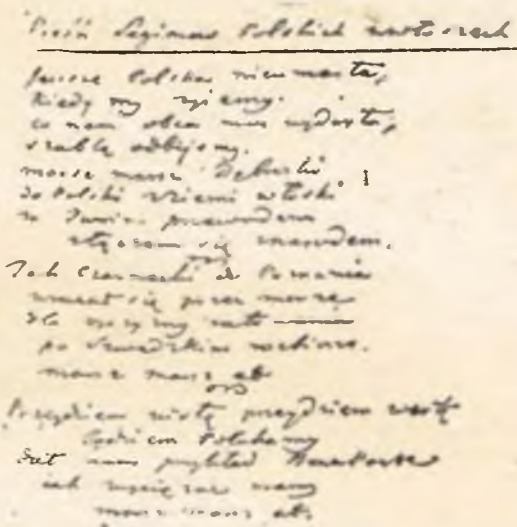 Pieśń Legionów Polskich we Włoszech
Jeszcze Polska nieumarła,
kiedy my żyjemy.
co nam obca moc wydarła,
szablą odbijemy.
marsz marsz Dąbrowski
do Polski z ziemi włoski
za Twoim przewodem
złączem się z narodem.
Jak Czarniecki do Poznania
wracał się przez morze
dla ojczyzny
po szwedzkim rozbiorze.
marsz marsz etc
Przejdziem Wisłę przejdziem Wartę
będziem Polakami
dał nam przykład Bonaparte
jak zwyciężać mamy
marsz marsz etc